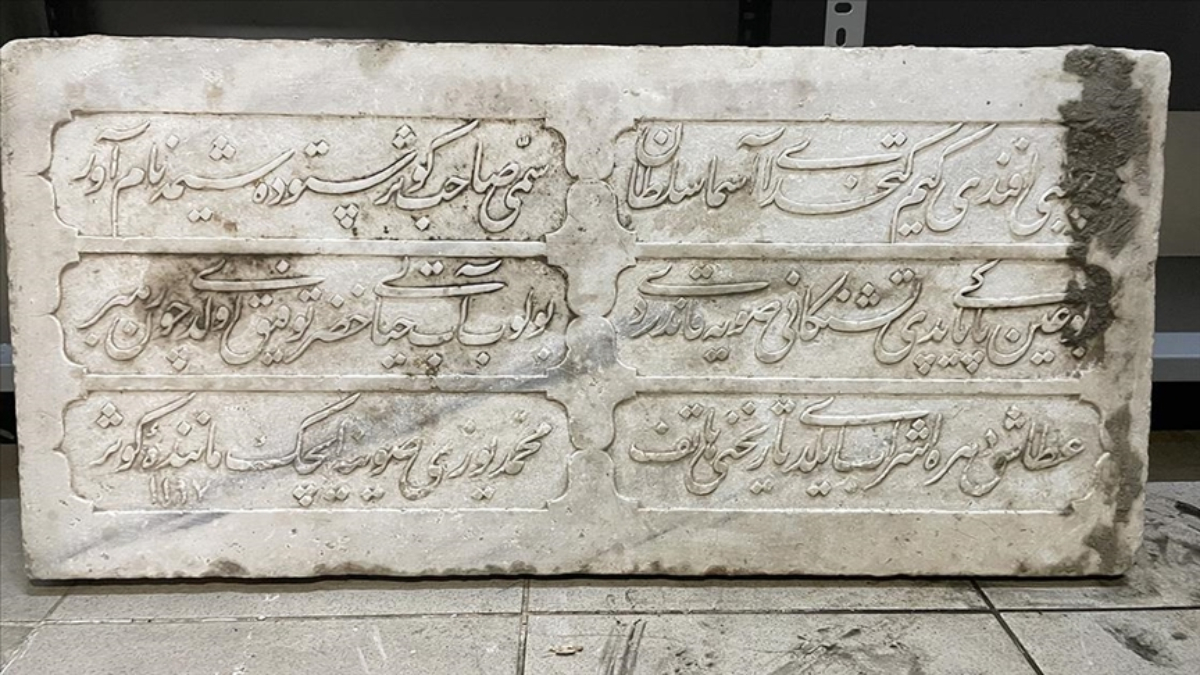 افندی کیم کتخدای آسما سلطان
سمی صاحب کوثر ستوده شیمه نام آور
بو عین پاکی یاپدی تشنکانی صویه قاندردی
بولوب آب حیاتی خضر توفیقی اولدی چون رهبر
تاریخنی هاتف
محمد یوزی صوینه ایچک ماننده کوثر
۱۱۹۷